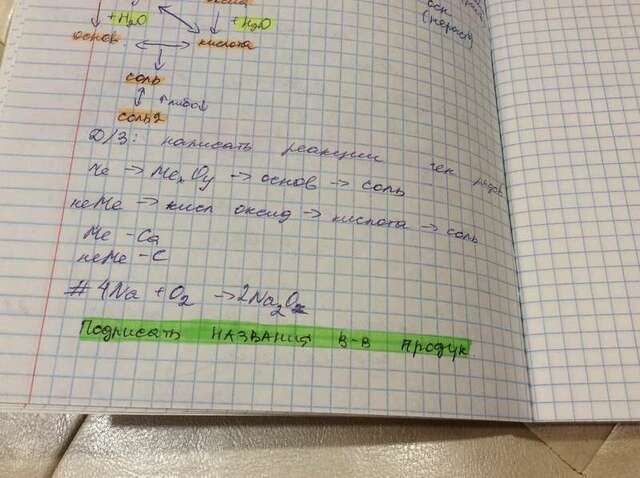 +H2O +H2O
основ кислота
соль
соль 2
Д/З: написать реакции ген рядов
Me → MexOy → основ → соль
неMe → кисл оксид → кислота → соль
Me - Ca
неMe - C
# 4Na + O2 → 2Na2O
Подписать НАЗВАНИЯ В-В продук.